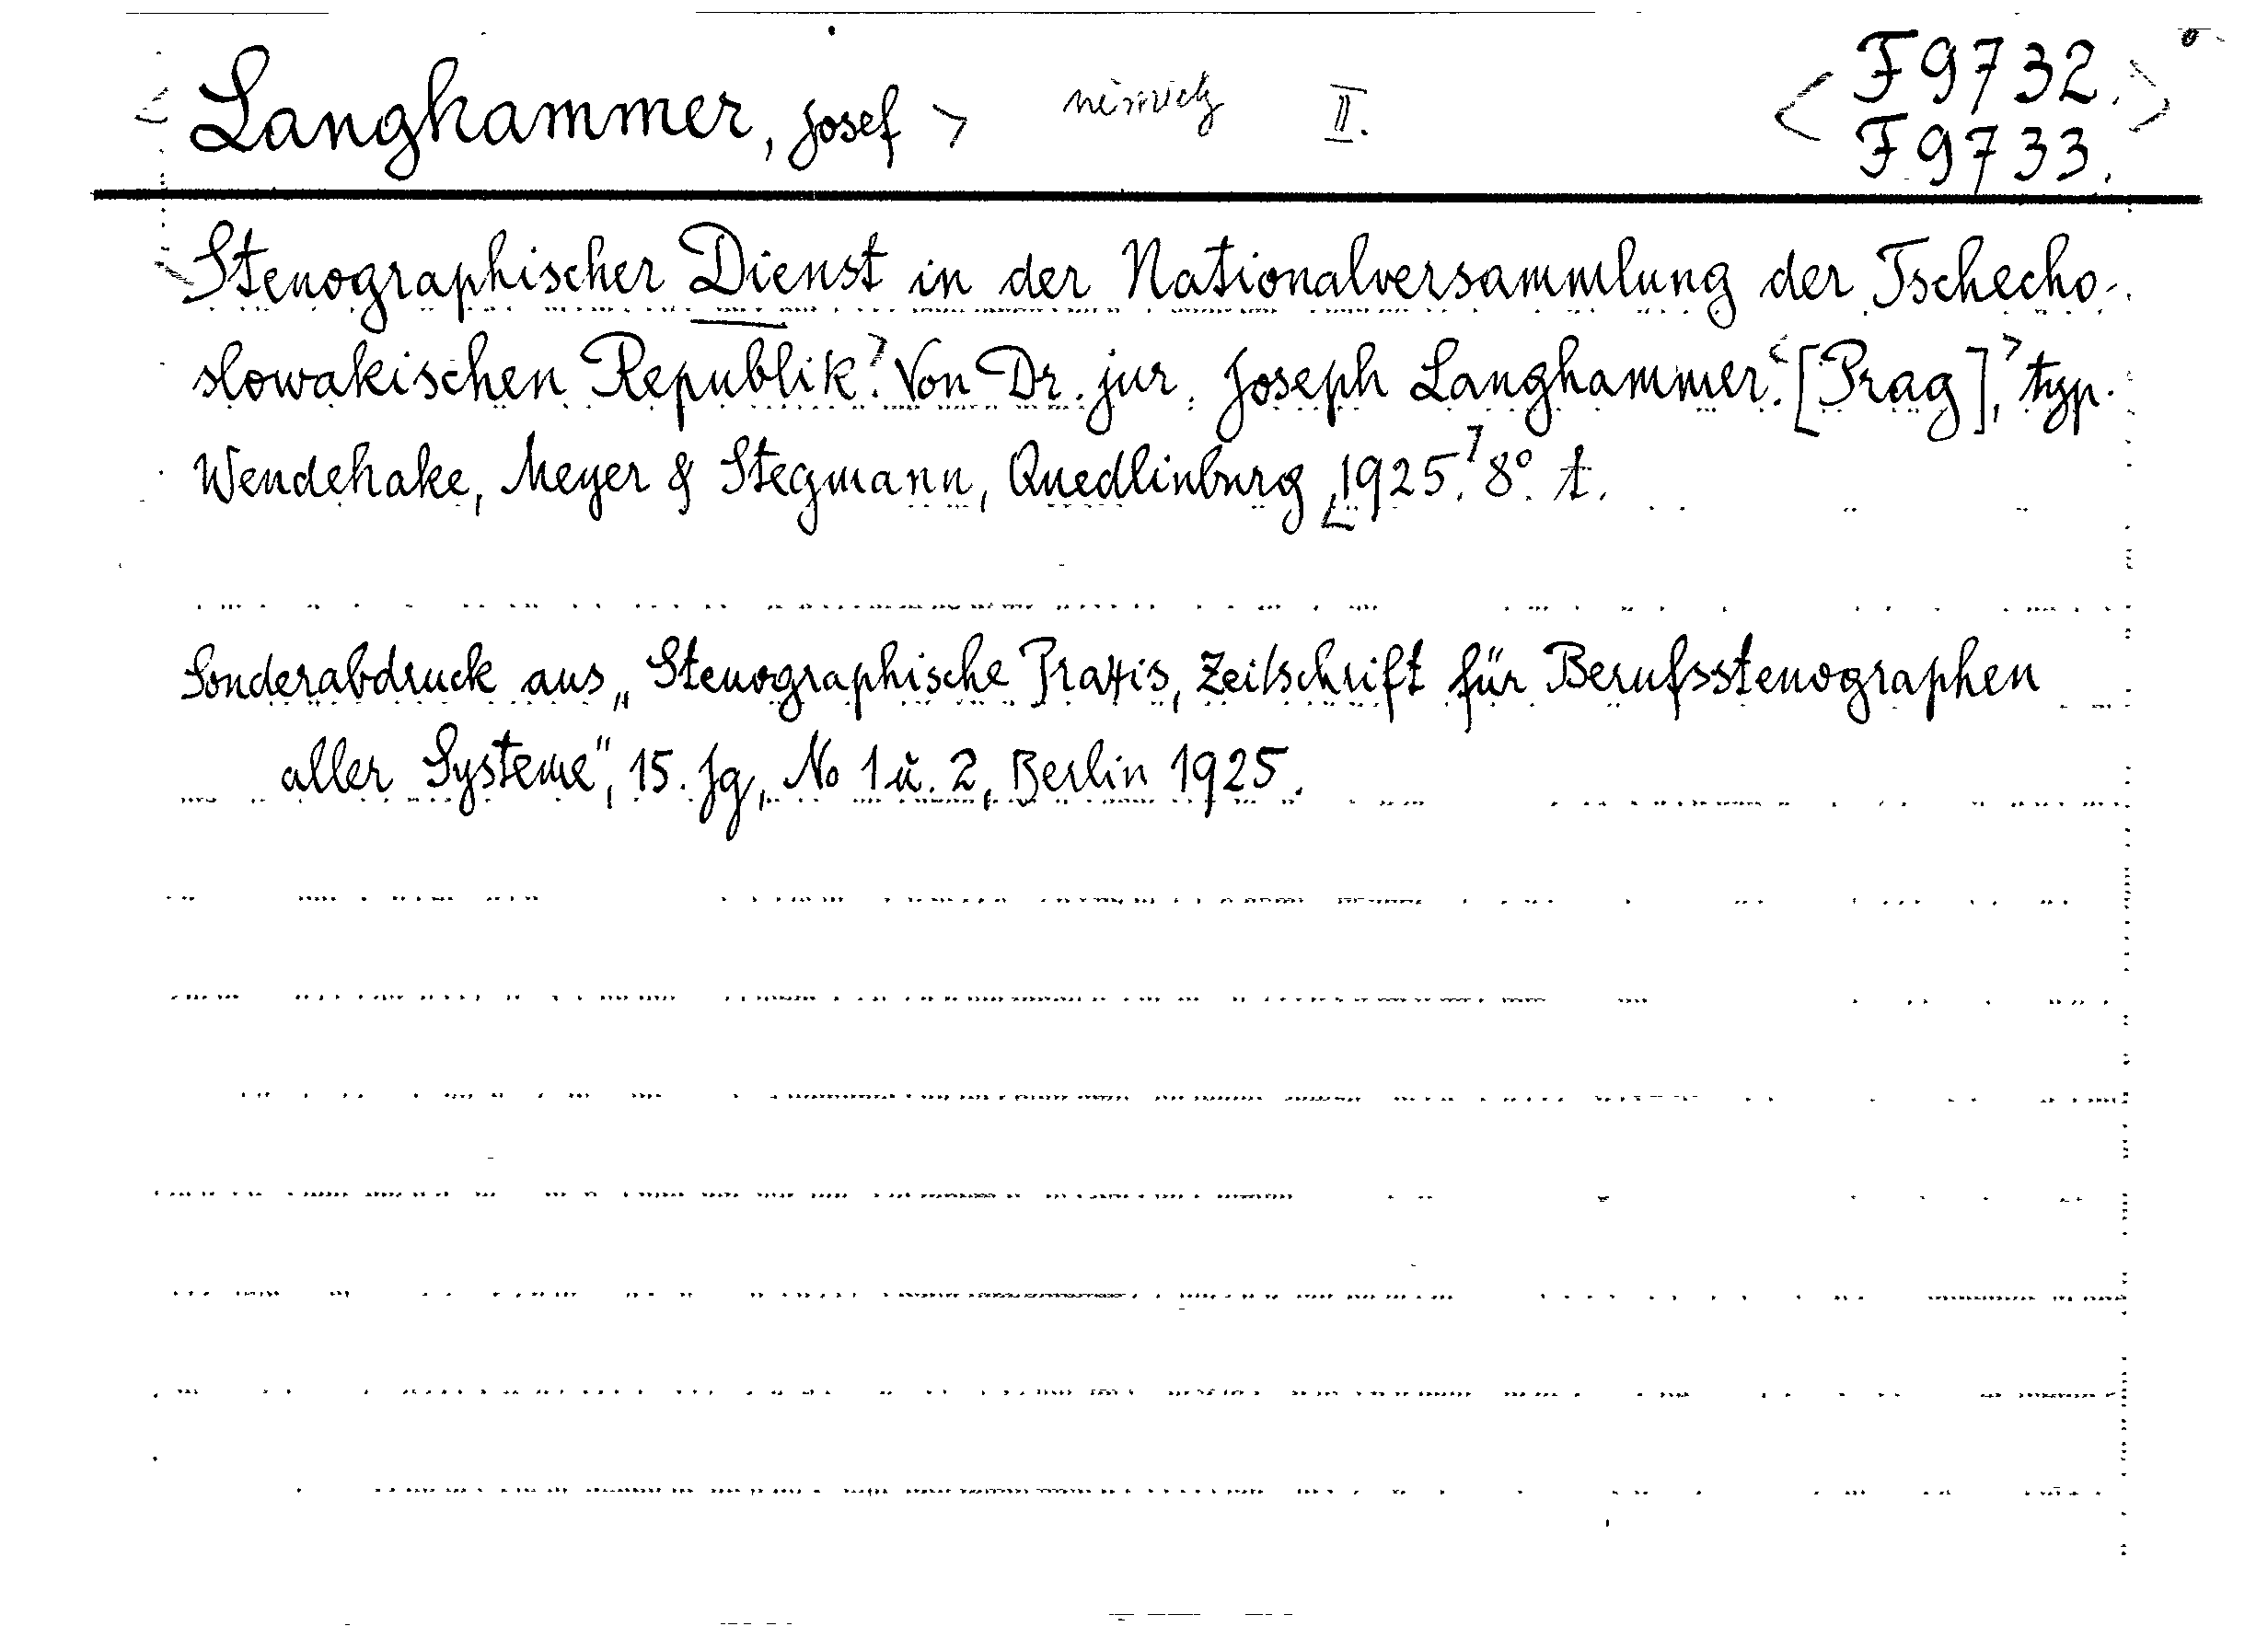 Langhammer, Josef II. F 9732.
F 9733.
Stenographischer Dienst in der Nationalversammlung der Tschecho-
slowakischen Republik. Von Dr. jur. Joseph Langhammer. [Prag], typ.
Wendehake, Meyer & Stegmann, Quedlinburg, 1925. 8° t.
Sonderabdruck aus „Stenographische Praxis, Zeitschrift für Berufsstenographen
aller Systeme", 15. Jg, No 1 u. 2, Berlin 1925.